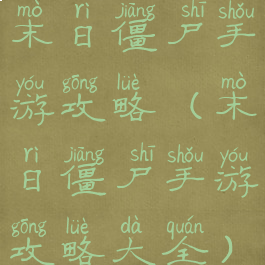 mò rì jiāng shī shǒu
末日僵尸手
yóu gōng lüè mò
游攻略（末
rì jiāng shī shǒu yóu
日僵尸手游
gōng lüè dà quán
攻略大全）